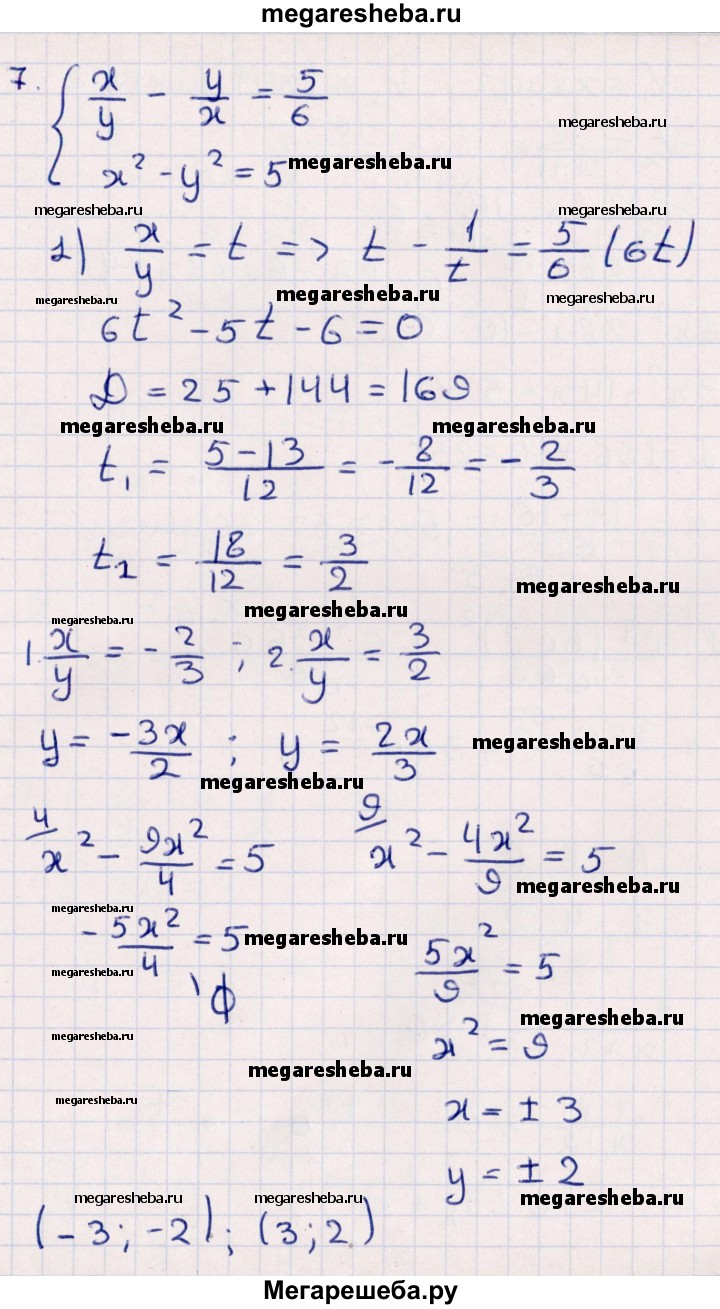 megaresheba.ru
7. { x/y - y/x = 5/6
megaresheba.ru
x² - y² = 5 megaresheba.ru
megaresheba.ru megaresheba.ru
1) x/y = t => t - 1/t = 5/6 (6t)
megaresheba.ru megaresheba.ru megaresheba.ru
6t² - 5t - 6 = 0
D = 25 + 144 = 169
megaresheba.ru megaresheba.ru
t₁ = (5-13)/12 = -8/12 = -2/3
t₂ = 18/12 = 3/2
megaresheba.ru
megaresheba.ru megaresheba.ru
1. x/y = -2/3 ; 2. x/y = 3/2
y = -3x/2 ; y = 2x/3 megaresheba.ru
megaresheba.ru
4/ x² - 9x²/4 = 5 9/ x² - 4x²/9 = 5
megaresheba.ru
megaresheba.ru
-5x²/4 = 5 megaresheba.ru 5x²/9 = 5
megaresheba.ru
\ ϕ megaresheba.ru
megaresheba.ru x² = 9
megaresheba.ru
megaresheba.ru x = ± 3
y = ± 2
megaresheba.ru megaresheba.ru megaresheba.ru
(-3; -2); (3; 2)
Мегарешеба.ру